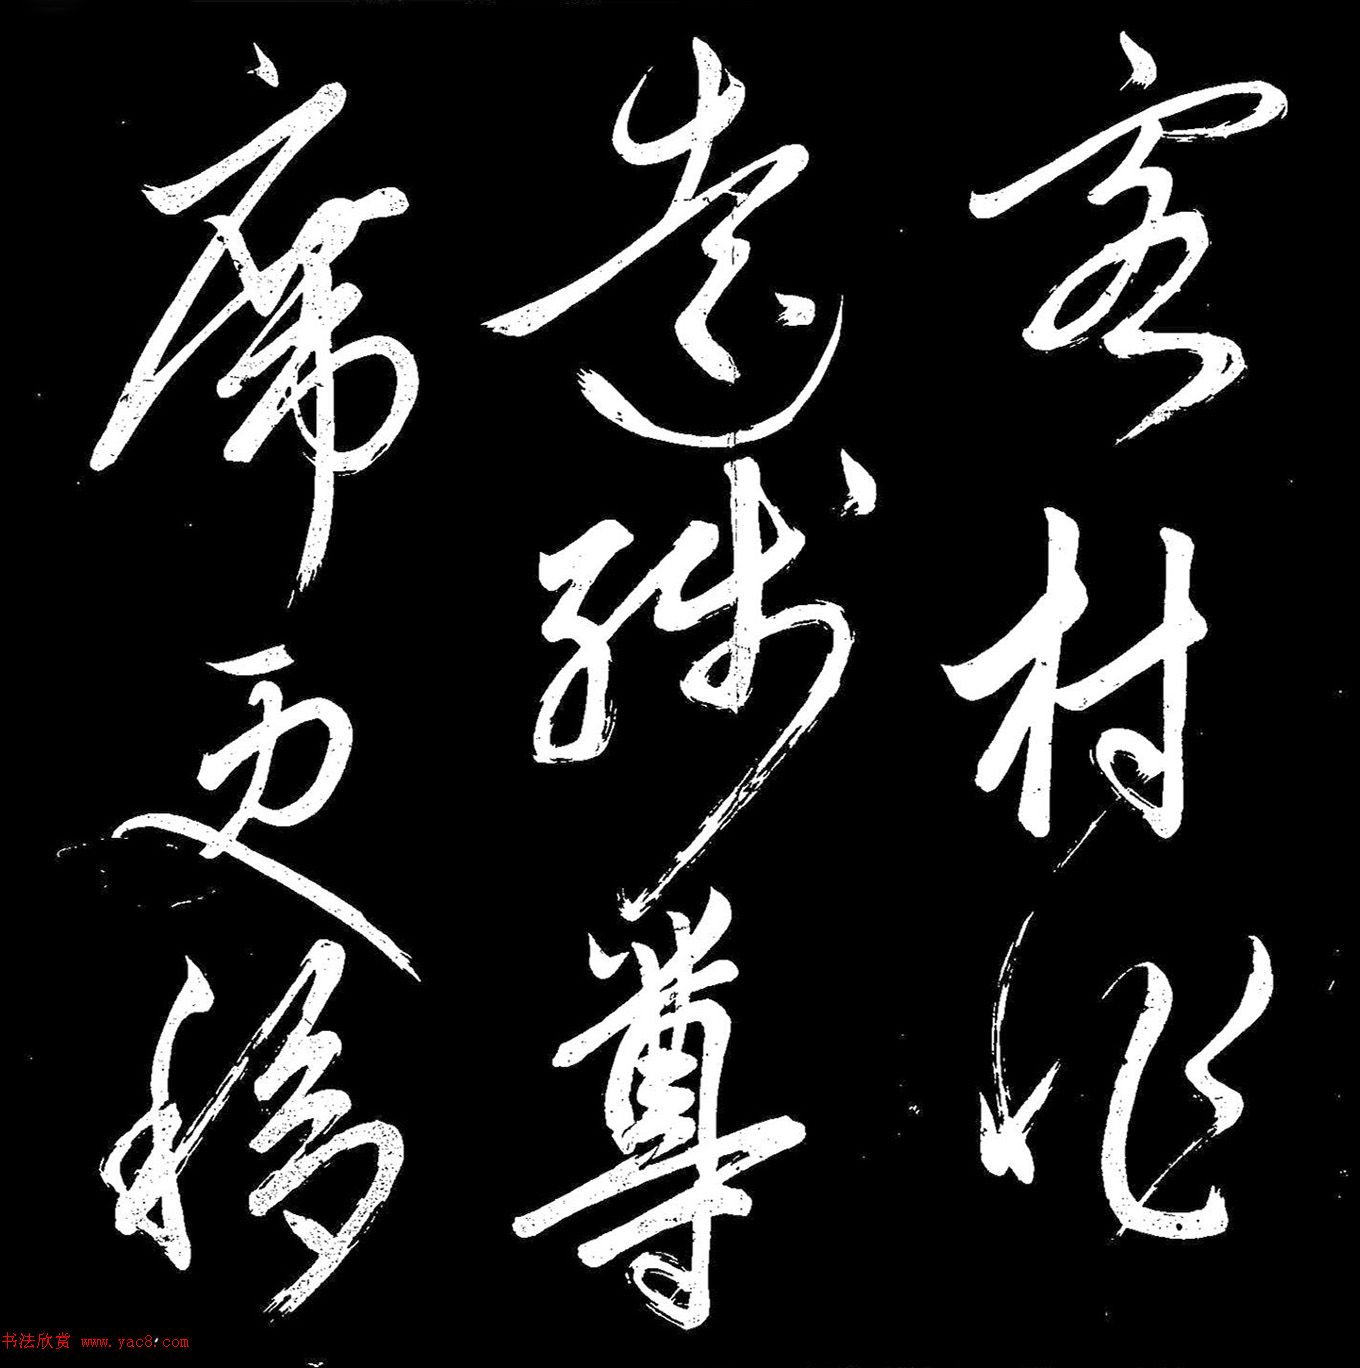 客村非
遠殘尊
席更移
书法欣赏 www.yac8.com